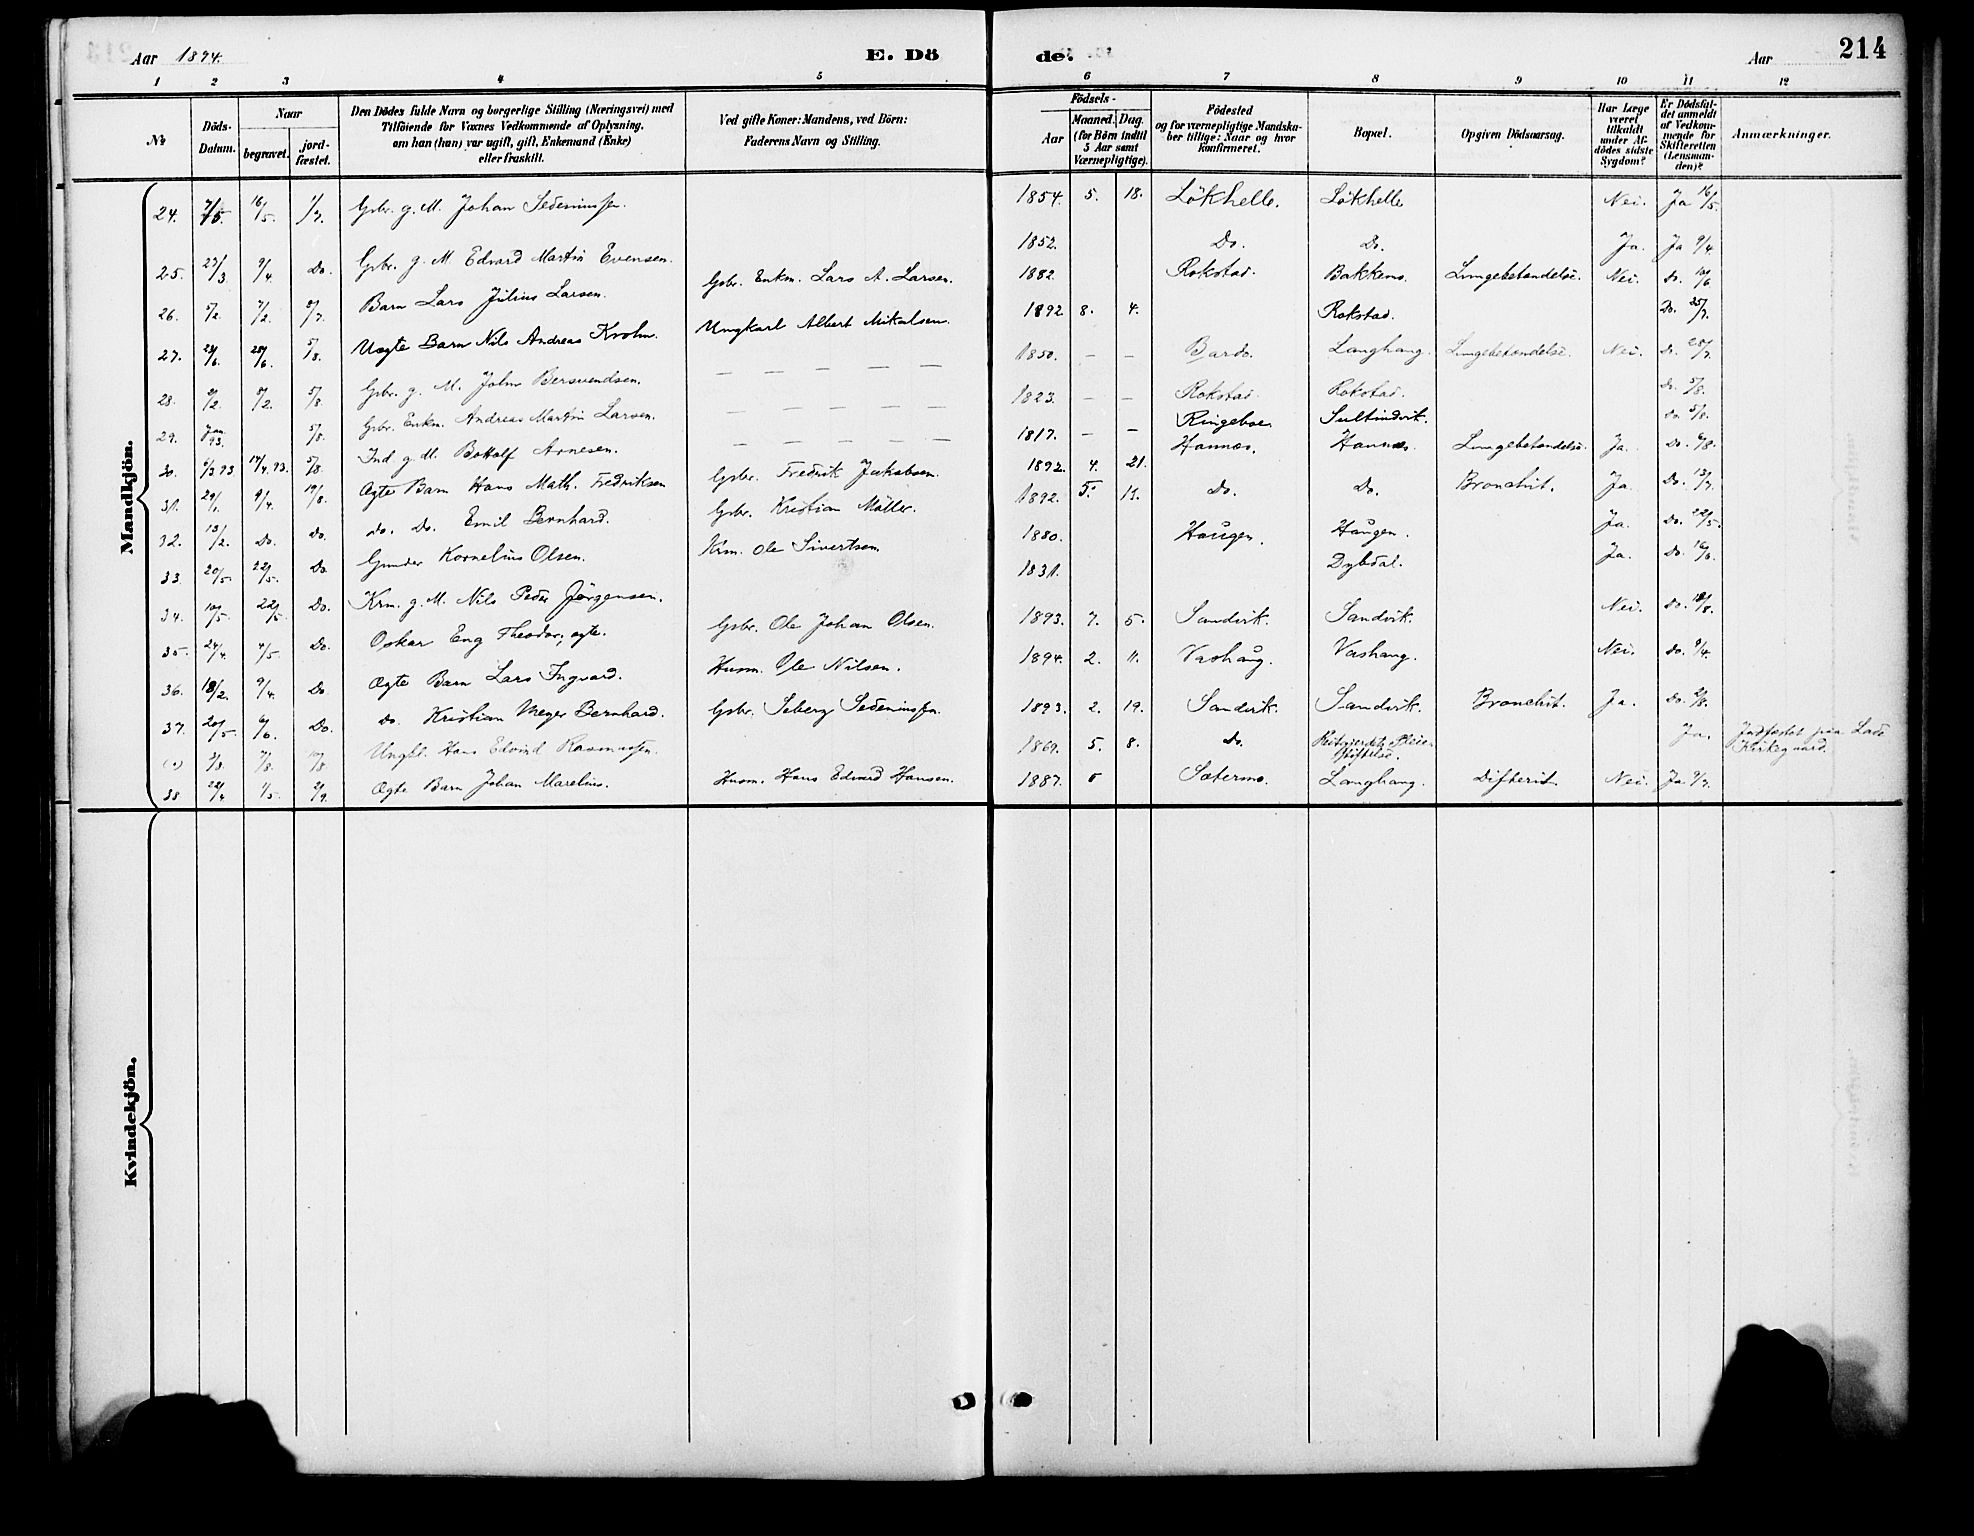 Aar 1894. E. Dö de. Aar 214
1 2 3 4 5 6 7 8 9 10 11 12
№ Döds-Datum. Naar begravet. jordfæstet. Den Dødes fulde Navn og borgerlige Stilling (Næringsvei) med Tilföiende for Voxnes Vedkommende af Oplysning, om han (han) var ugift, gift, Enkemand (Enke) eller fraskilt. Ved gifte Koner: Mandens, ved Börn: Faderens Navn og Stilling. Födsels- Aar Maaned. Dag. (for Børn indtil 5 Aar samt Værnepligtige). Födested og for værnepligtige Mandskaber tillige: Naar og hvor konfirmeret. Bopæl. Opgiven Dödsaarsag. Har Læge været tilkaldt under Afdödes sidste Sygdom? Er Dödsfaldet anmeldt af Vedkommende for Skifteretten (Lensmanden)? Anmærkninger.
Mandkjön.
24. 7/5. 16/5 1/7. Gsbr. g. M. Johan Sedeniussen. 1854. 5. 18. Lökhelle. Lökhelle Nei. Ja 16/5.
25. 23/3 9/4 Do. Gsbr. g. M Edvard Martin Evensen. 1852. Do. Do. Ja. Ja 9/4.
26. 5/2. 7/2. 8/7 Barn Lars Julius Larsen. Gsbr. Enkm. Lars A. Larsen. 1882. Rokstad. Bakkemo. Lungebetændelse. Nei. Do. 10/6
27. 23/6. 28/6. 5/8. Uægte Barn Nils Andreas Krohn. Ungkarl Albert Mikalsen. 1892 8. 4. Rokstad. Do. 25/7.
28. 2/2. 8/2. 5/8 Gsbr. g. M. John Bersvendsen. — — — — — 1850. — — Bardo. Langhaug. Lungebetændelse. Nei. Do. 28/7.
29. Jan. 93. 5/8. Gsbr. Enkm. Andreas Martin Larsen. — — — — — 1823. — — Rokstad. Rokstad. Do. 5/8.
30. 6/3 93 14/4. 93. 5/8. Ind. g. M. Bottolf Arnesen. — — — — — 1817. — — Ringeboe. Sultindvik. Do. 5/8.
31. 29/1. 9/4. 19/8. Ægte Barn Hans Math. Fredriksen Gsbr. Fredrik Jakobsen. 1892. 4. 21. Hannæs. Hannæs. Lungebetændelse. Ja. Do. 6/8.
32. 13/2. Do. Do. Do. Do. Emil Bernhard. Gsbr. Kristian Möller. 1892. 5. 11. Do. Do. Bronchit. Ja. Do. 13/7.
33. 20/5. 22/5. Do. Gunder Kornelius Olsen. Krm. Ole Sivertsen. 1880. Haugen. Haugen. Ja. Do. 22/5.
34. 10/5. 22/5. Do. Krm. g. M. Nils Peder Jörgensen. 1831. Dybdal. Ja. Do. 16/6.
35. 24/4. 4/5. Do. Oskar Eng Theodor, ægte. Gsbr. Ole Johan Olsen. 1893. 7. 5. Sandvik. Sandvik. Nei. Do. 18/8.
36. 18/2. 9/4. Do Ægte Barn Lars Ingvard. Husm. Ole Nilsen. 1894. 2. 11. Vashaug. Vashaug. Nei. Do. 9/4.
37. 20/5 6/6. Do. Do. Kristian Meyer Bernhard. Gsbr. Seberg Sedeniussen. 1893. 2. 19. Sandvik. Sandvik. Bronchit. Ja. Do. 2/8.
3/8. 7/8. 10/8 Ungkl. Hans Edvind Rasmussen. 1869. 5. 8. Do. Reitgjerdets Pleiestiftelse. Ja. Jordfæstet paa Lade Kirkegaard.
38 22/4 1/5. 2/9. Ægte Barn Johan Marelius. Husm. Hans Edvard Hansen. 1887. Sætermo. Langhaug. Difterit. Nei. Ja 9/7.
Kvindekjön.